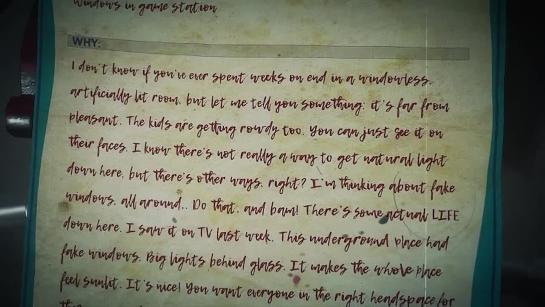 windows in game station
WHY:
I don't know if you've ever spent weeks on end in a windowless,
artificially lit room, but let me tell you something: it's far from
pleasant. The kids are getting rowdy too. You can just see it on
their faces. I know there's not really a way to get natural light
down here, but there's other ways, right? I'm thinking about fake
windows, all around.. Do that, and bam! There's some actual LIFE
down here. I saw it on TV last week. This underground place had
fake windows. Big lights behind glass. It makes the whole place
feel sunlit. It's nice! You want everyone in the right headspace for